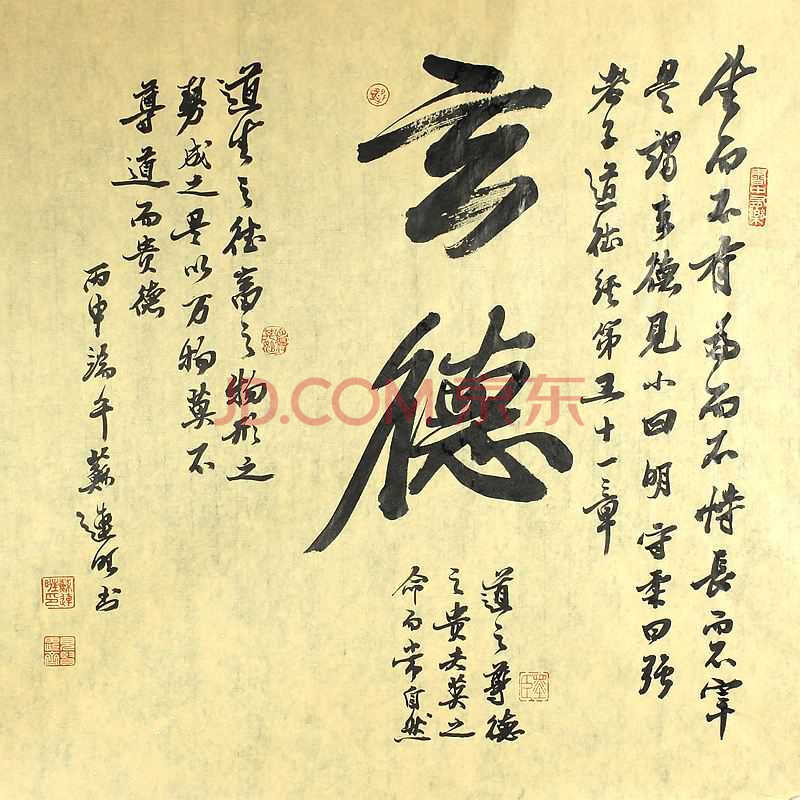 玄德
生而不有為而不恃長而不宰
是謂玄德見小曰明守柔曰强
老子道德經第五十一章
道之尊德
之贵夫莫之
命而常自然
道生之德畜之物形之
势成之是以万物莫不
尊道而贵德
丙申端午蘇連明书
JD.COM 京东